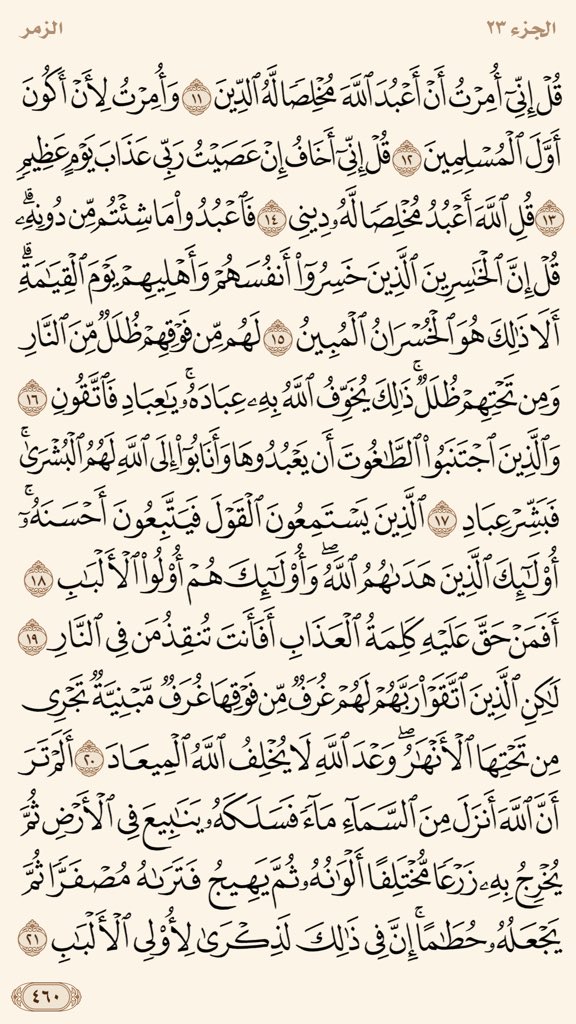 الجزء ٢٣
الزمر
قُلْ إِنِّىٓ أُمِرْتُ أَنْ أَعْبُدَ ٱللَّهَ مُخْلِصًا لَّهُ ٱلدِّينَ ١١ وَأُمِرْتُ لِأَنْ أَكُونَ
أَوَّلَ ٱلْمُسْلِمِينَ ١٢ قُلْ إِنِّىٓ أَخَافُ إِنْ عَصَيْتُ رَبِّى عَذَابَ يَوْمٍ عَظِيمٍ
١٣ قُلِ ٱللَّهَ أَعْبُدُ مُخْلِصًا لَّهُۥ دِينِى ١٤ فَٱعْبُدُوا۟ مَا شِئْتُم مِّن دُونِهِۦ ۗ
قُلْ إِنَّ ٱلْخَـٰسِرِينَ ٱلَّذِينَ خَسِرُوٓا۟ أَنفُسَهُمْ وَأَهْلِيهِمْ يَوْمَ ٱلْقِيَـٰمَةِ ۗ
أَلَا ذَٰلِكَ هُوَ ٱلْخُسْرَانُ ٱلْمُبِينُ ١٥ لَهُم مِّن فَوْقِهِمْ ظُلَلٌ مِّنَ ٱلنَّارِ
وَمِن تَحْتِهِمْ ظُلَلٌ ۚ ذَٰلِكَ يُخَوِّفُ ٱللَّهُ بِهِۦ عِبَادَهُۥ ۚ يَـٰعِبَادِ فَٱتَّقُونِ ١٦
وَٱلَّذِينَ ٱجْتَنَبُوا۟ ٱلطَّـٰغُوتَ أَن يَعْبُدُوهَا وَأَنَابُوٓا۟ إِلَى ٱللَّهِ لَهُمُ ٱلْبُشْرَىٰ ۚ
فَبَشِّرْ عِبَادِ ١٧ ٱلَّذِينَ يَسْتَمِعُونَ ٱلْقَوْلَ فَيَتَّبِعُونَ أَحْسَنَهُۥٓ ۚ
أُو۟لَـٰٓئِكَ ٱلَّذِينَ هَدَىٰهُمُ ٱللَّهُ ۖ وَأُو۟لَـٰٓئِكَ هُمْ أُو۟لُوا۟ ٱلْأَلْبَـٰبِ ١٨
أَفَمَنْ حَقَّ عَلَيْهِ كَلِمَةُ ٱلْعَذَابِ أَفَأَنتَ تُنقِذُ مَن فِى ٱلنَّارِ ١٩
لَـٰكِنِ ٱلَّذِينَ ٱتَّقَوْا۟ رَبَّهُمْ لَهُمْ غُرَفٌ مِّن فَوْقِهَا غُرَفٌ مَّبْنِيَّةٌ تَجْرِى
مِن تَحْتِهَا ٱلْأَنْهَـٰرُ ۖ وَعْدَ ٱللَّهِ لَا يُخْلِفُ ٱللَّهُ ٱلْمِيعَادَ ٢٠ أَلَمْ تَرَ
أَنَّ ٱللَّهَ أَنزَلَ مِنَ ٱلسَّمَآءِ مَآءً فَسَلَكَهُۥ يَنَـٰبِيعَ فِى ٱلْأَرْضِ ثُمَّ
يُخْرِجُ بِهِۦ زَرْعًا مُّخْتَلِفًا أَلْوَٰنُهُۥ ثُمَّ يَهِيجُ فَتَرَىٰهُ مُصْفَرًّا ثُمَّ
يَجْعَلُهُۥ حُطَـٰمًا ۚ إِنَّ فِى ذَٰلِكَ لَذِكْرَىٰ لِأُو۟لِى ٱلْأَلْبَـٰبِ ٢١
٤٦٠